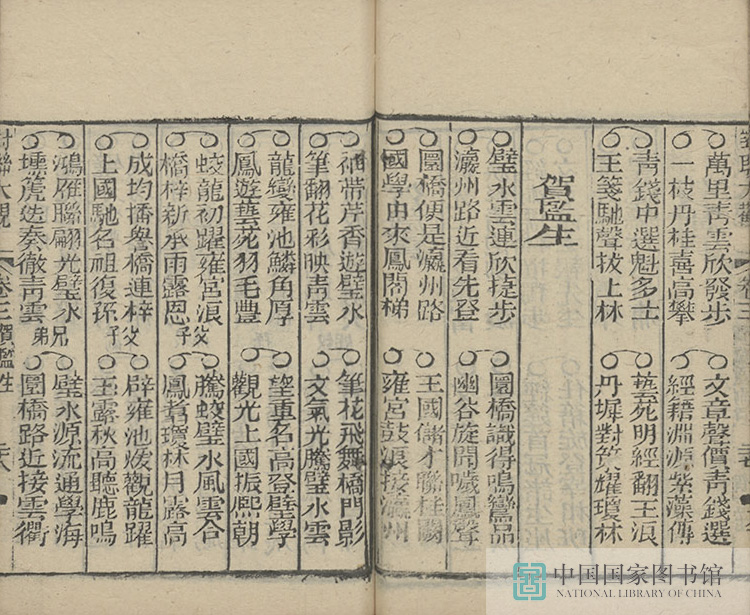 萬里青雲欣發步 文章聲價青錢選
一枝丹桂喜高攀 經籍淵源紫藻傳
青錢中選魁多士 藝苑明經翻玉浪
玉箋馳聲拔上林 丹墀對策耀瓊林
賀監生
璧水雲連欣捷步 圜橋識得鳴鸞品
瀛州路近看先登 幽谷旋聞噦鳳聲
圜橋便是瀛州路 王國儲才聯桂闕
國學由來鳳閣梯 雍宮鼓浪接瀛州
帶芹香遊璧水 筆花飛舞橋門影
筆翻花彩映青雲 文氣光騰璧水雲
龍變雍池鱗角厚 望重名高登璧學
鳳遊藝苑羽毛豐 觀光上國振熙朝
蛟龍初躍雍宮浪父 騰蛟璧水風雲合
橋梓新承雨露恩子 鳳翥瓊林月露高
成均播譽橋連梓父 辟雍池煥觀龍躍
上國馳名祖復孫子 玉露秋高聽鹿鳴
鴻雁聯翩光璧水兄 璧水源流通學海
壎箎迭奏徹青雲弟 圜橋路近接雲衢
對聯大觀 卷三賀監生
中国国家图书馆
NATIONAL LIBRARY OF CHINA